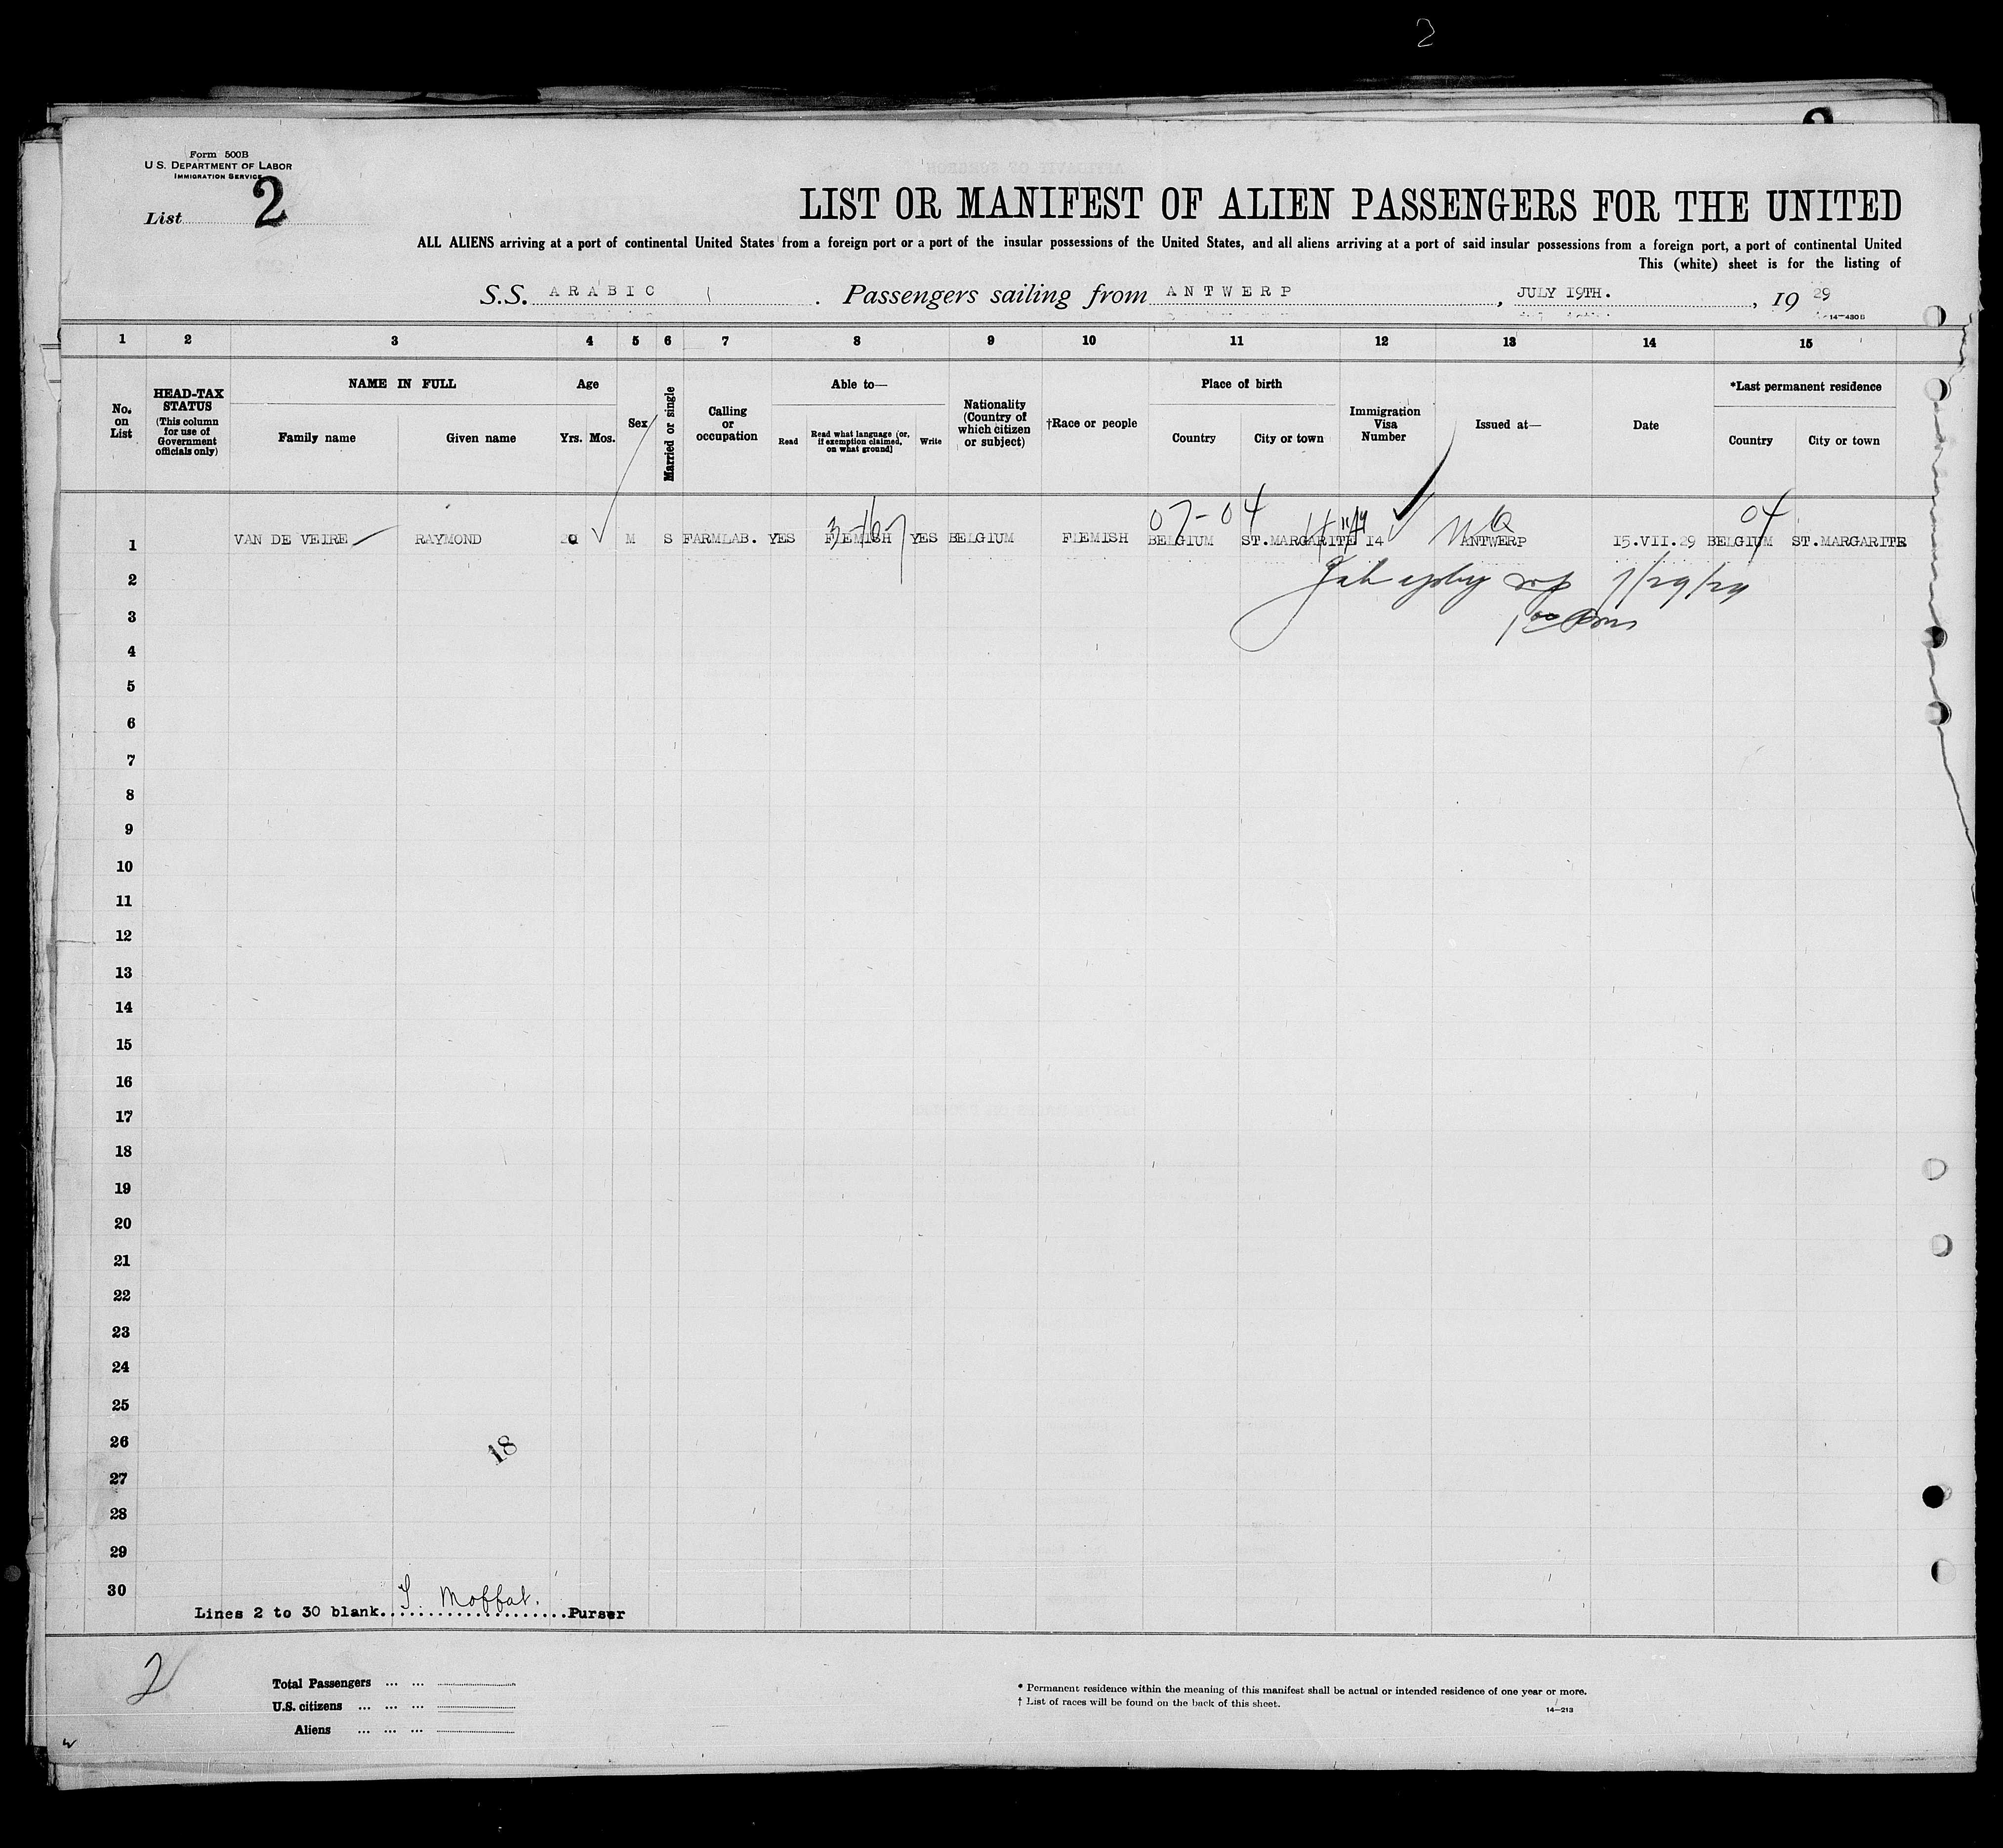 2
Form 500B
U.S. DEPARTMENT OF LABOR
IMMIGRATION SERVICE
List 2
LIST OR MANIFEST OF ALIEN PASSENGERS FOR THE UNITED
ALL ALIENS arriving at a port of continental United States from a foreign port or a port of the insular possessions of the United States, and all aliens arriving at a port of said insular possessions from a foreign port, a port of continental United
This (white) sheet is for the listing of
S.S. ARABIC . Passengers sailing from ANTWERP , JULY 19TH. , 19 29
14-430B
1 2 3 4 5 6 7 8 9 10 11 12 13 14 15
No. on List
HEAD-TAX STATUS (This column for use of Government officials only)
NAME IN FULL
Family name Given name
Age
Yrs. Mos.
Sex
Married or single
Calling or occupation
Able to—
Read Read what language [or, if exemption claimed, on what ground] Write
Nationality (Country of which citizen or subject)
†Race or people
Place of birth
Country City or town
Immigration Visa Number
Issued at—
Date
*Last permanent residence
Country City or town
3-167 07-04 04
1 VAN DE VEIRE RAYMOND M S FARMLAB. YES FLEMISH YES BELGIUM FLEMISH BELGIUM ST.MARGARITE 14 ANTWERP 15.VII.29 BELGIUM ST.MARGARITE
2 7/29/29
3
4
5
6
7
8
9
10
11
12
13
14
15
16
17
18
19
20
21
22
23
24
25
26
18
27
28
29
30
Lines 2 to 30 blank. Moffat. Purser
2
Total Passengers ... ...
U.S. citizens ... ... ...
Aliens ... ... ...
* Permanent residence within the meaning of this manifest shall be actual or intended residence of one year or more.
† List of races will be found on the back of this sheet.
14-213